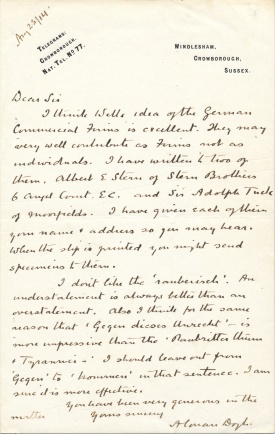 Aug 25/14
TELEGRAMS:
CROWBOROUGH.
NAT. TEL. No 77.
WINDLESHAM,
CROWBOROUGH,
SUSSEX.
Dear Sir
I think Wells idea of the German
Commercial Firms is excellent. They may
very well contribute as Firms not as
individuals. I have written to two of
them. Albert E Stern of Stern Brothers
6 Angel Court E.C. and Sir Adolph Tuck
of Moorfields. I have given each of them
your name & address so you may hear.
When the slip is printed you might send
specimens to them.
I don't like the 'rauberisch'. An
understatement is always better than an
overstatement. Also I think for the same
reason that 'Gegen dieses Unrecht' — is
more impressive than the 'Raubritter thum
& Tyrannei' — I should leave out from
'Gegen' to 'kommen' in that sentence. I am
sure it is more effective.
You have been very generous in the
matter
Yours sincerely
A Conan Doyle